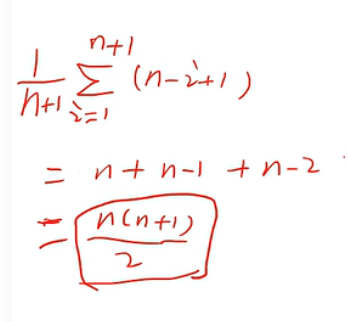 1/(n+1) Σ_{i=1}^{n+1} (n-i+1)
= n + n-1 + n-2
= n(n+1)/2